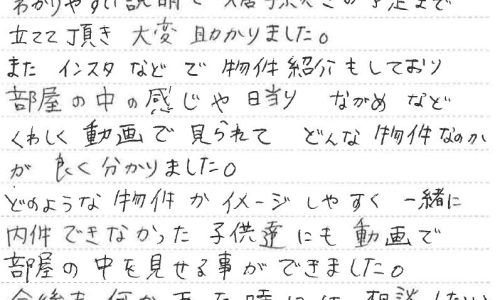 わかりやすい説明で
予定まで
立てて頂き 大変 助かりました。
また インスタ などで 物件 紹介 もしており
部屋の中の感じや 日当り ながめ など
くわしく 動画で 見られて どんな 物件 なのか
が 良く 分かりました。
どのような 物件 か イメージ しやすく 一緒に
内件 できなかった 子供達 にも 動画で
部屋の 中を 見せる事ができました。
今後も 何か あった 時には 相談 したい